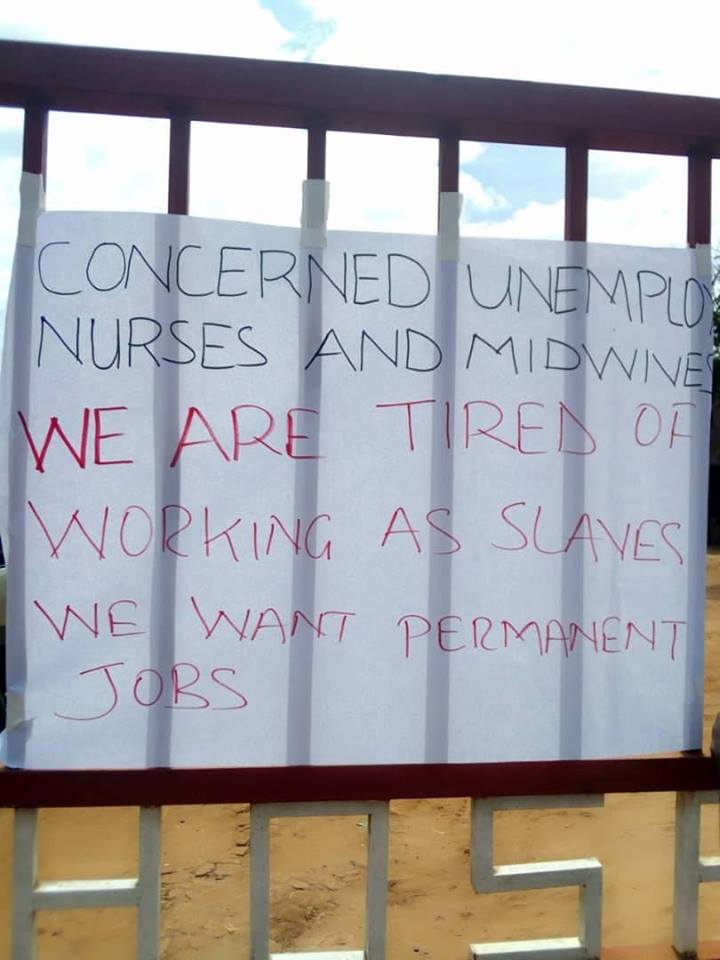 CONCERNED UNEMPLOY
NURSES AND MIDWINES
WE ARE TIRED OF
WORKING AS SLAVES
WE WANT PERMANENT
JOBS
HOS